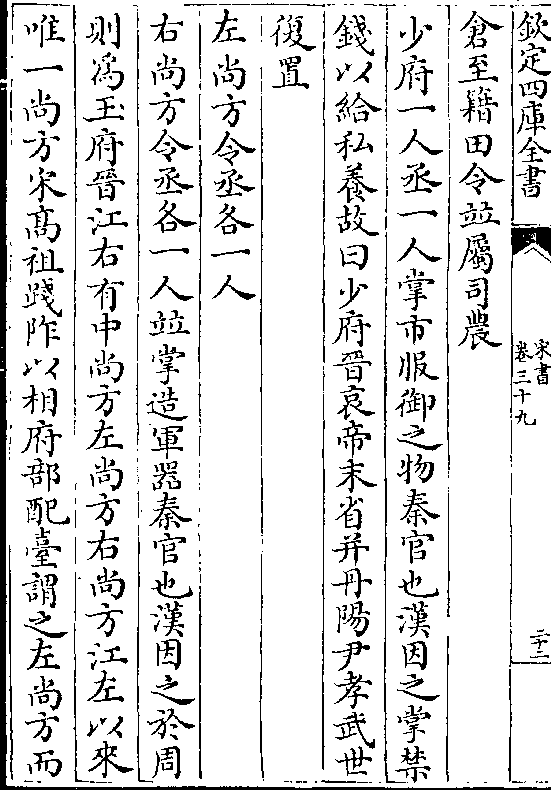 欽定四庫全書
宋書
卷三十九
二十二
倉至籍田令並屬司農
少府一人丞一人掌市服御之物秦官也漢因之掌禁
錢以給私養故曰少府晉哀帝末省并丹陽尹孝武世
復置
左尚方令丞各一人
右尚方令丞各一人並掌造軍器秦官也漢因之於周
則為玉府晉江右有中尚方左尚方右尚方江左以來
唯一尚方宋髙祖踐阼以相府部配臺謂之左尚方而